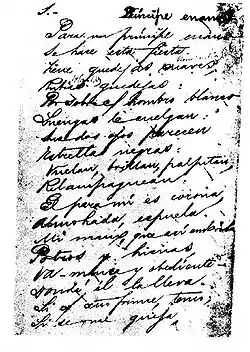 1.-
Príncipe enano
Para un príncipe enano
Se hace esta fiesta.
Tiene guedejas suaves,
guedejas:
Por sobre el hombro blanco
Luengas le cuelgan:
Sus dos ojos parecen
Estrellas negras:
Vuelan, brillan, palpitan,
Relampaguean
El para mí es corona,
Almohada, espuela.
Mi mano, que así embrida
Potros y hienas,
Va mansa y obediente
Donde él la lleva.
Si el ceño frunce, temo;
Si se me queja,